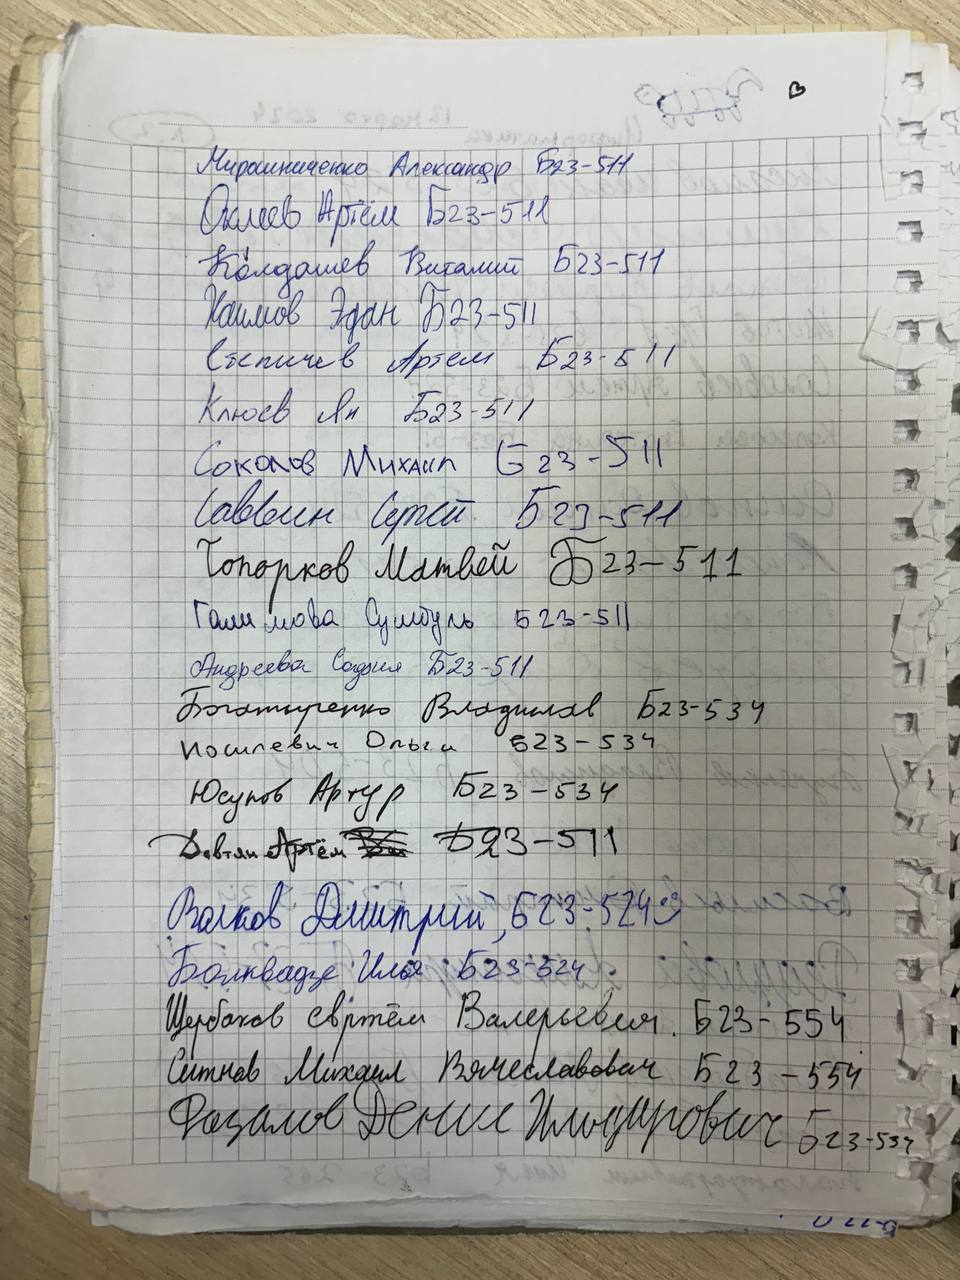 Мирошниченко Александр Б23-511
Оклеев Артём Б23-511
Колдашев Виталий Б23-511
Наимов Эдан Б23-511
Степичев Артем Б23-511
Клюев Ян Б23-511
Соколов Михаил Б23-511
Саввин Сергей Б23-511
Топорков Матвей Б23-511
Галимова Сумбуль Б23-511
Андреева София Б23-511
Богатыренко Владислав Б23-534
Носилевич Ольга Б23-534
Юсупов Артур Б23-534
Давтян Артём Б23-511
Волков Дмитрий, Б23-524
Болквадзе Илья Б23-524
Щербаков Валерьевич. Б23-554
Ситнов Михаил Вячеславович Б23-554
Фазалов Денис Ильдирович Б23-534